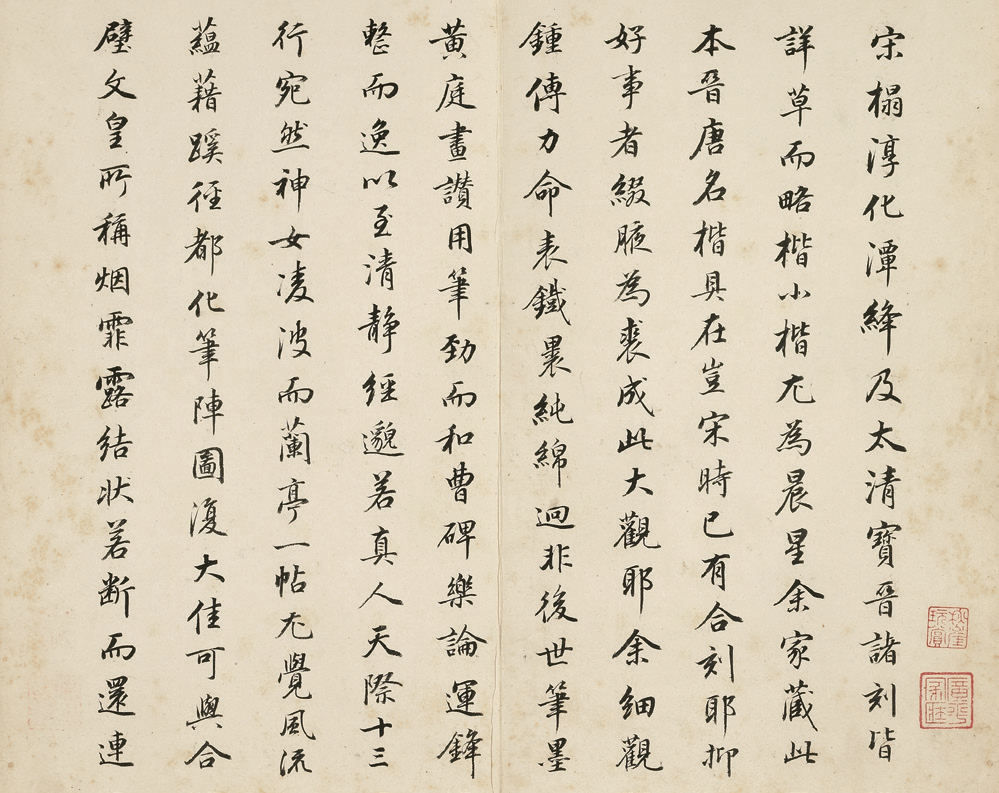 宋榻淳化潭絳及太清寶晉諸刻皆
詳草而略楷小楷尤為晨星余家藏此
本晉唐名楷具在豈宋時已有合刻耶抑
好事者綴腋為裘成此大觀耶余細觀
鍾傅力命表鐵裹純綿迥非後世筆墨
黃庭畫讚用筆勁而和曹碑樂論運鋒
整而逸以至清靜經邈若真人天際十三
行宛然神女凌波而蘭亭一帖尤覺風流
蘊藉蹊徑都化筆陣圖復大佳可與合
璧文皇所稱烟霏露結狀若断而還連